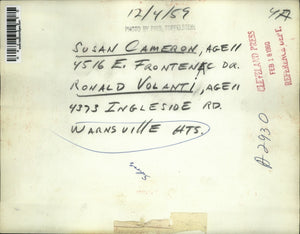 12/4/59
PHOTO BY PAUL TEPPELSTEIN
SUSAN CAMERON, AGE 11
4516 E. FRONTENAC DR.
RONALD VOLANTI, AGE 11
4373 INGLESIDE RD.
WARNSVILLE HTS.
CLEVELAND PRESS
FEB 18 1960
REFERENCE DEPT.
A2930